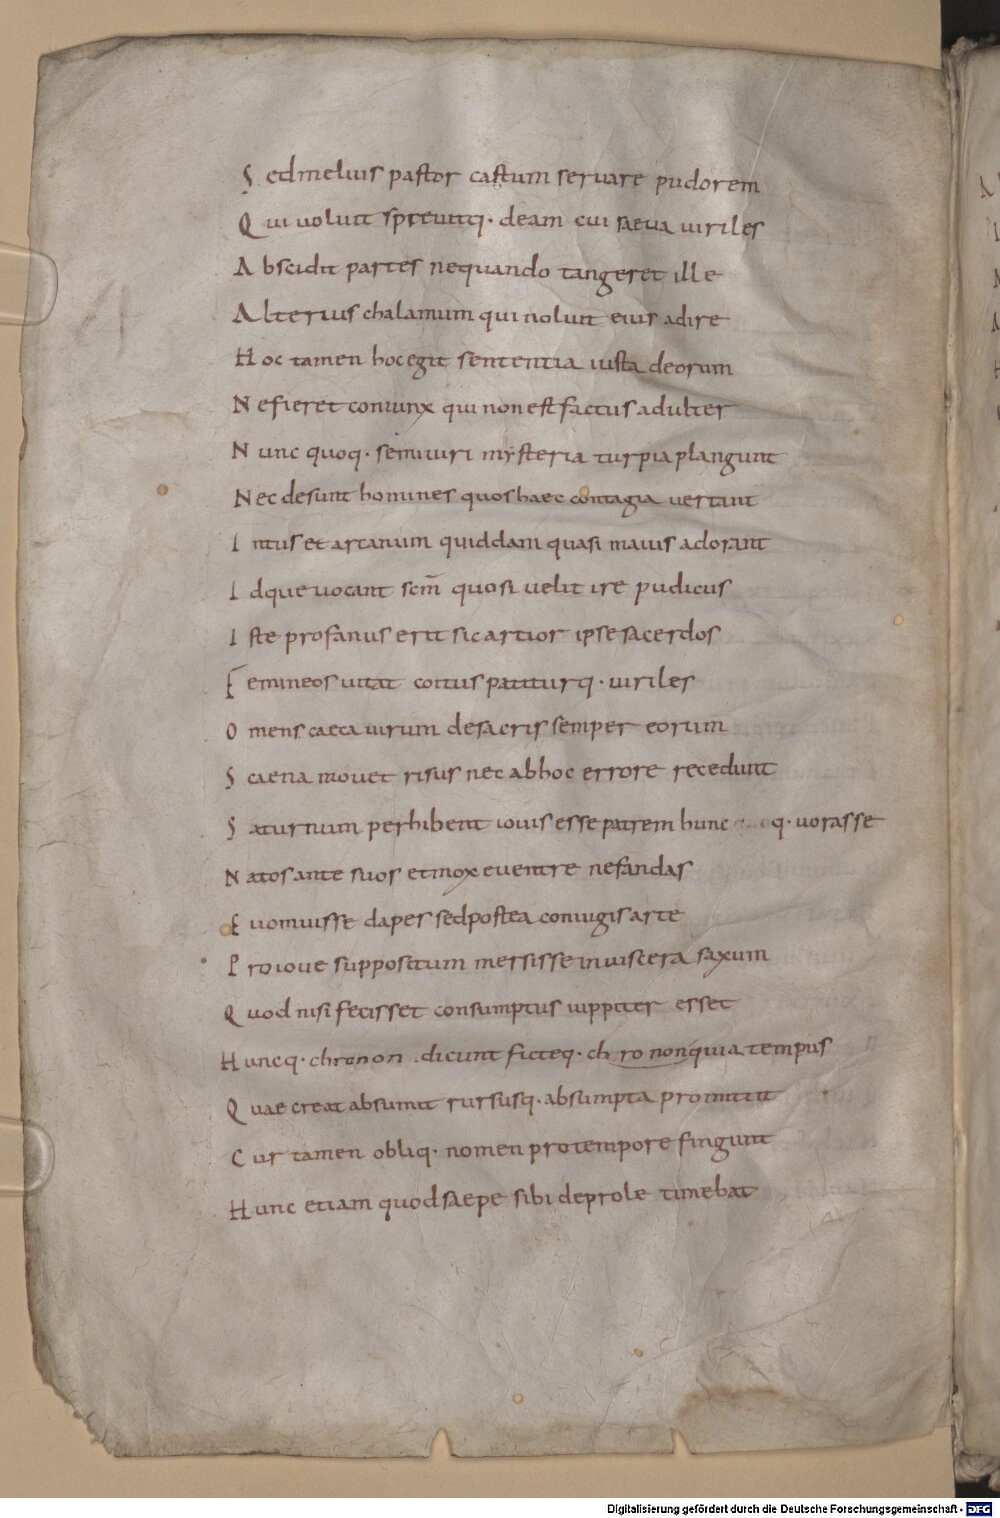 Sed melius pastor castum servare pudorem
Qui uoluit spreuitq· deam cui saeua uiriles
Abscidit partes nequando tangeret ille
Alterius thalamum qui noluit eius adire
Hoc tamen hoc egit sententia iusta deorum
Ne fieret coniunx qui non est factus adulter
Nunc quoq· semiuiri mysteria turpia plangunt
Nec desunt homines quos haec contagia uertant
Intus et arcanum quiddam quasi maius adorant
Idque uocant scm̄ quo si uelit ire pudicus
Iste profanus erit sic artior ipse sacerdos
Femineos uitat coitus patiturq· uiriles
O mens caeca uirum de sacris semper eorum
Scaena mouet risus nec ab hoc errore recedunt
Saturnum perhibent iouis esse patrem hunc q· uorasse
Natos ante suos et mox e uentre nefandas
Euomuisse dapes sed postea coniugis arte
Pro ioue suppositum mersisse in uiscera saxum
Quod nisi fecisset consumptus iuppiter esset
Huncq· chronon dicunt ficteq· chronon quia tempus
Quae creat absumit rursusq· absumpta promittit
Cur tamen obliq· nomen pro tempore fingunt
Hunc etiam quod saepe sibi de prole timebat
Digitalisierung gefördert durch die Deutsche Forschungsgemeinschaft - DFG